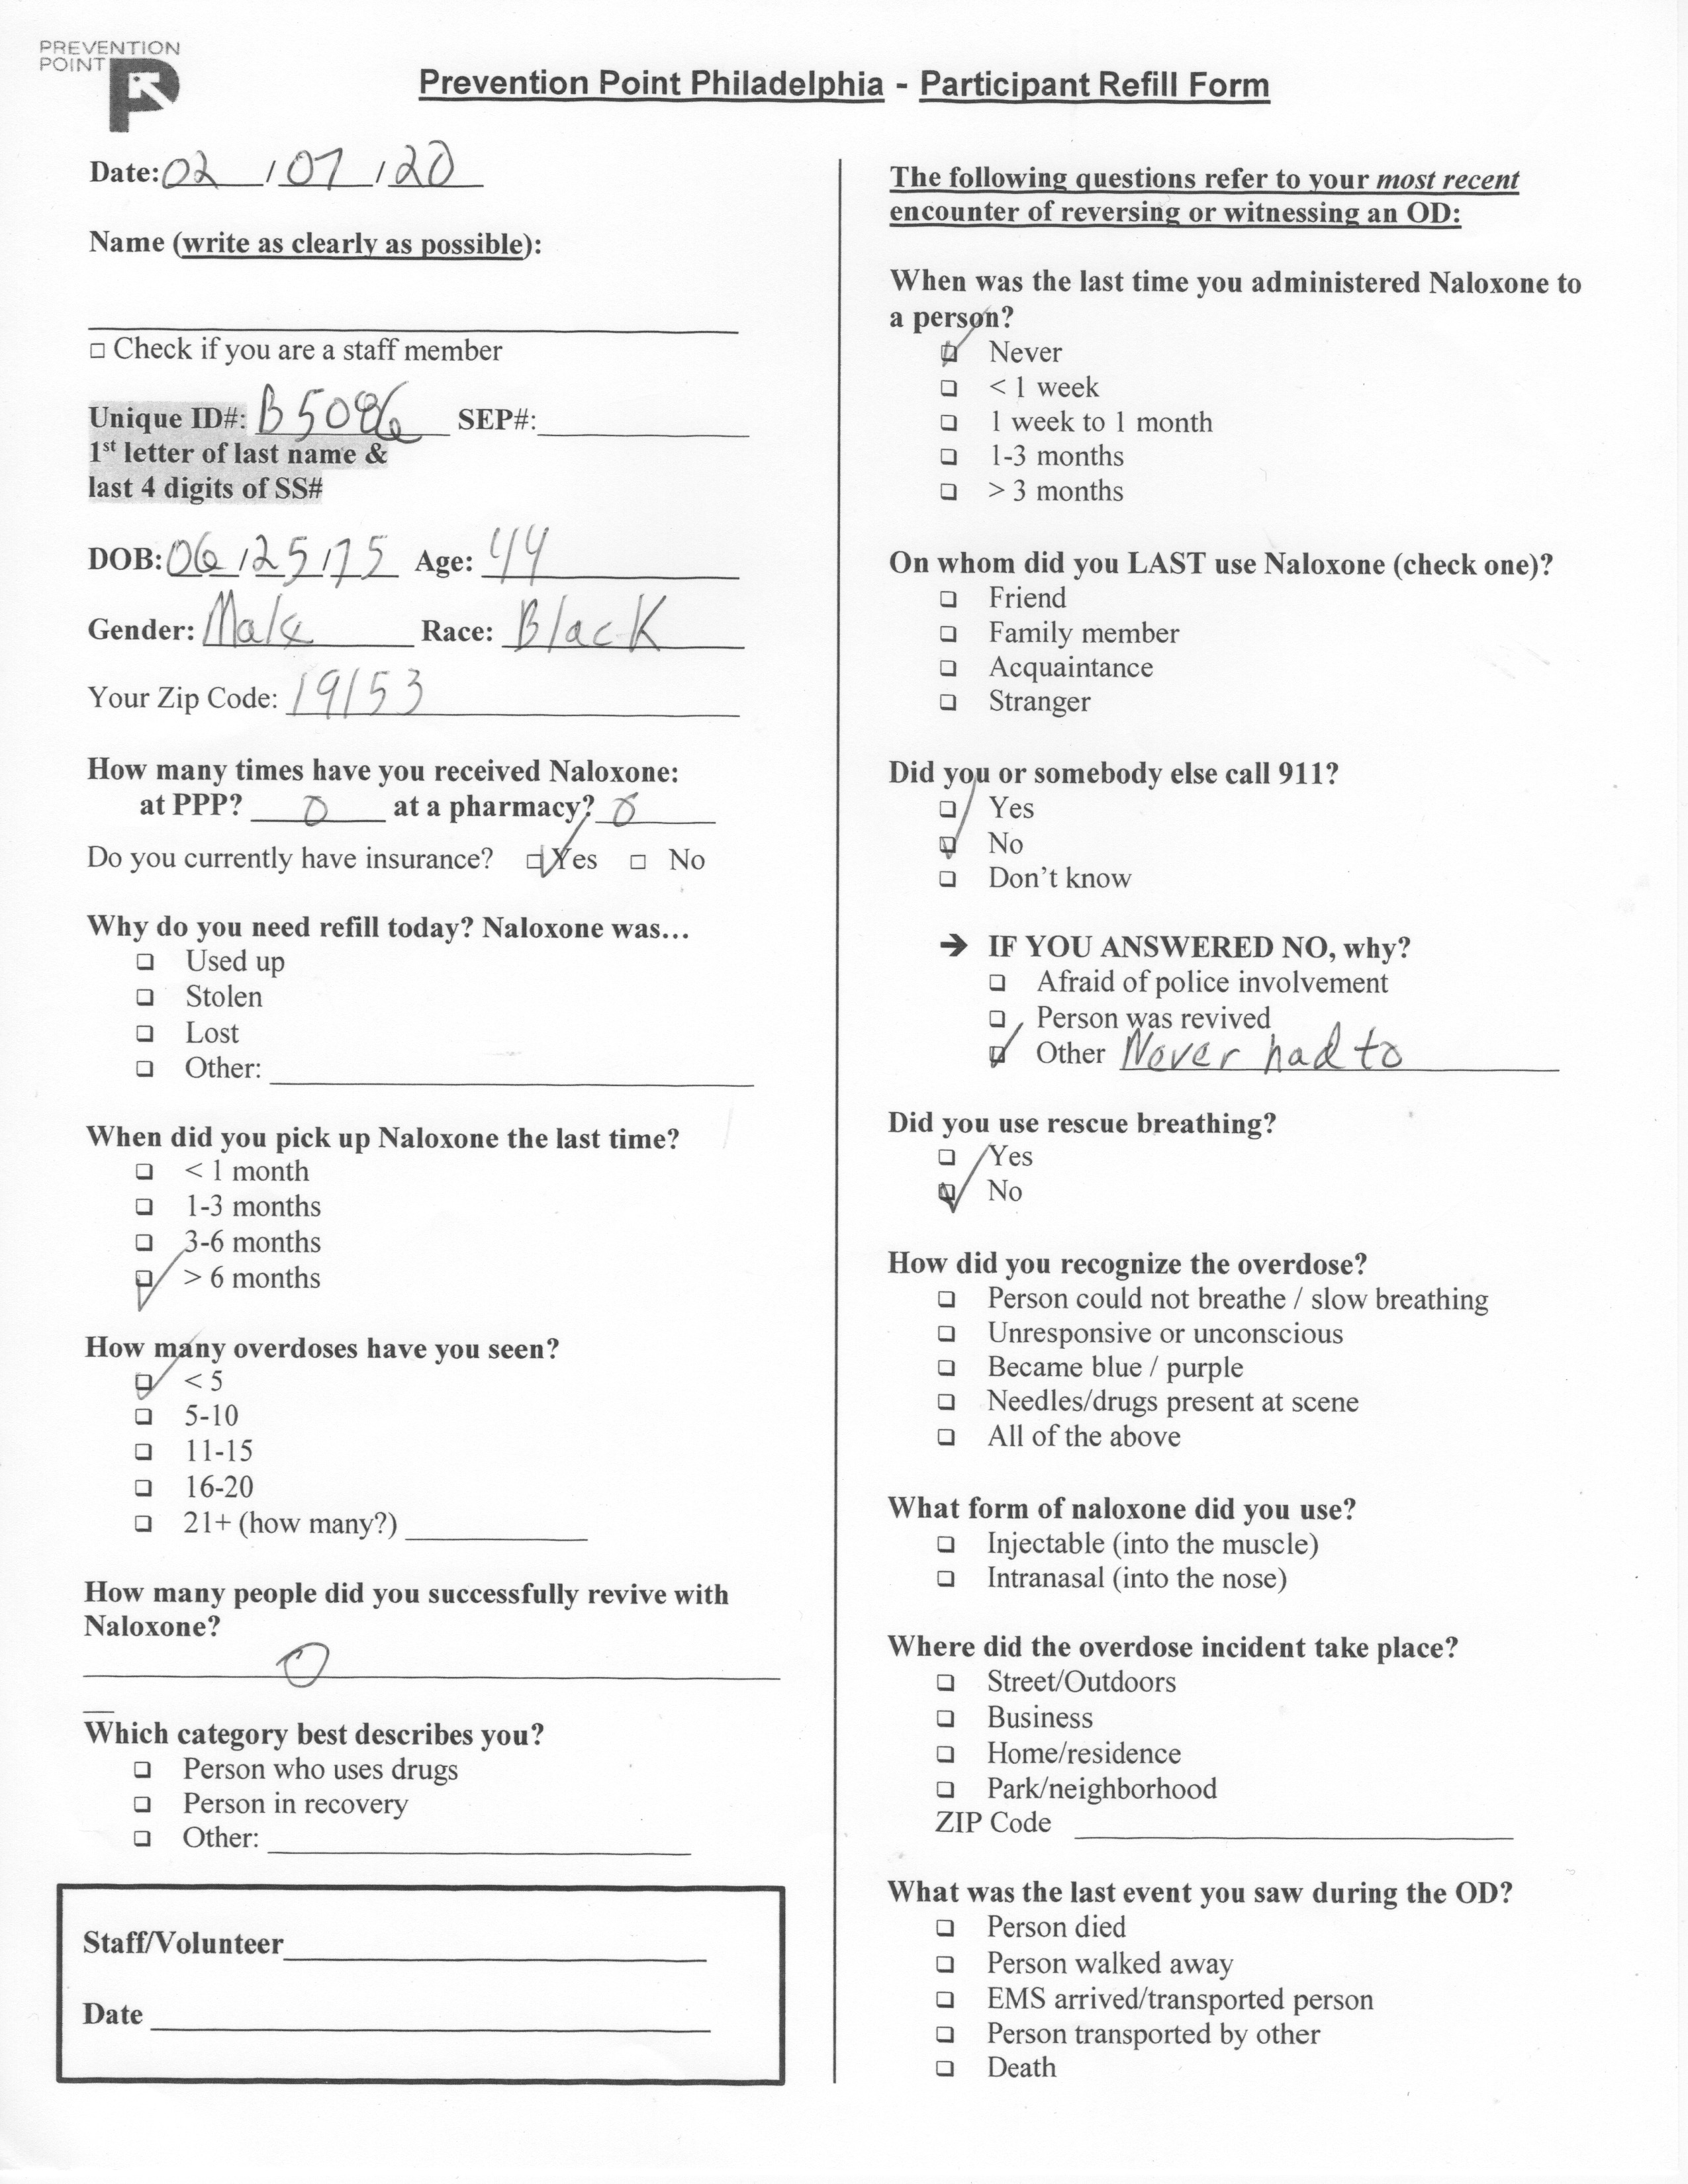 PREVENTION
POINT
Prevention Point Philadelphia - Participant Refill Form
Date: 02 / 07 / 20
Name (write as clearly as possible):
□ Check if you are a staff member
Unique ID#: B5086 SEP#:
1st letter of last name &
last 4 digits of SS#
DOB: 06/25/75 Age: 44
Gender: Male Race: Black
Your Zip Code: 19153
How many times have you received Naloxone:
at PPP? 0 at a pharmacy? 0
Do you currently have insurance? ☑ Yes □ No
Why do you need refill today? Naloxone was…
□ Used up
□ Stolen
□ Lost
□ Other:
When did you pick up Naloxone the last time?
□ < 1 month
□ 1-3 months
□ 3-6 months
☑ > 6 months
How many overdoses have you seen?
☑ < 5
□ 5-10
□ 11-15
□ 16-20
□ 21+ (how many?)
How many people did you successfully revive with
Naloxone?
0
Which category best describes you?
□ Person who uses drugs
□ Person in recovery
□ Other:
Staff/Volunteer
Date
The following questions refer to your most recent
encounter of reversing or witnessing an OD:
When was the last time you administered Naloxone to
a person?
☑ Never
□ < 1 week
□ 1 week to 1 month
□ 1-3 months
□ > 3 months
On whom did you LAST use Naloxone (check one)?
□ Friend
□ Family member
□ Acquaintance
□ Stranger
Did you or somebody else call 911?
□ Yes
☑ No
□ Don't know
➔ IF YOU ANSWERED NO, why?
□ Afraid of police involvement
□ Person was revived
☑ Other Never had to
Did you use rescue breathing?
□ Yes
☑ No
How did you recognize the overdose?
□ Person could not breathe / slow breathing
□ Unresponsive or unconscious
□ Became blue / purple
□ Needles/drugs present at scene
□ All of the above
What form of naloxone did you use?
□ Injectable (into the muscle)
□ Intranasal (into the nose)
Where did the overdose incident take place?
□ Street/Outdoors
□ Business
□ Home/residence
□ Park/neighborhood
ZIP Code
What was the last event you saw during the OD?
□ Person died
□ Person walked away
□ EMS arrived/transported person
□ Person transported by other
□ Death